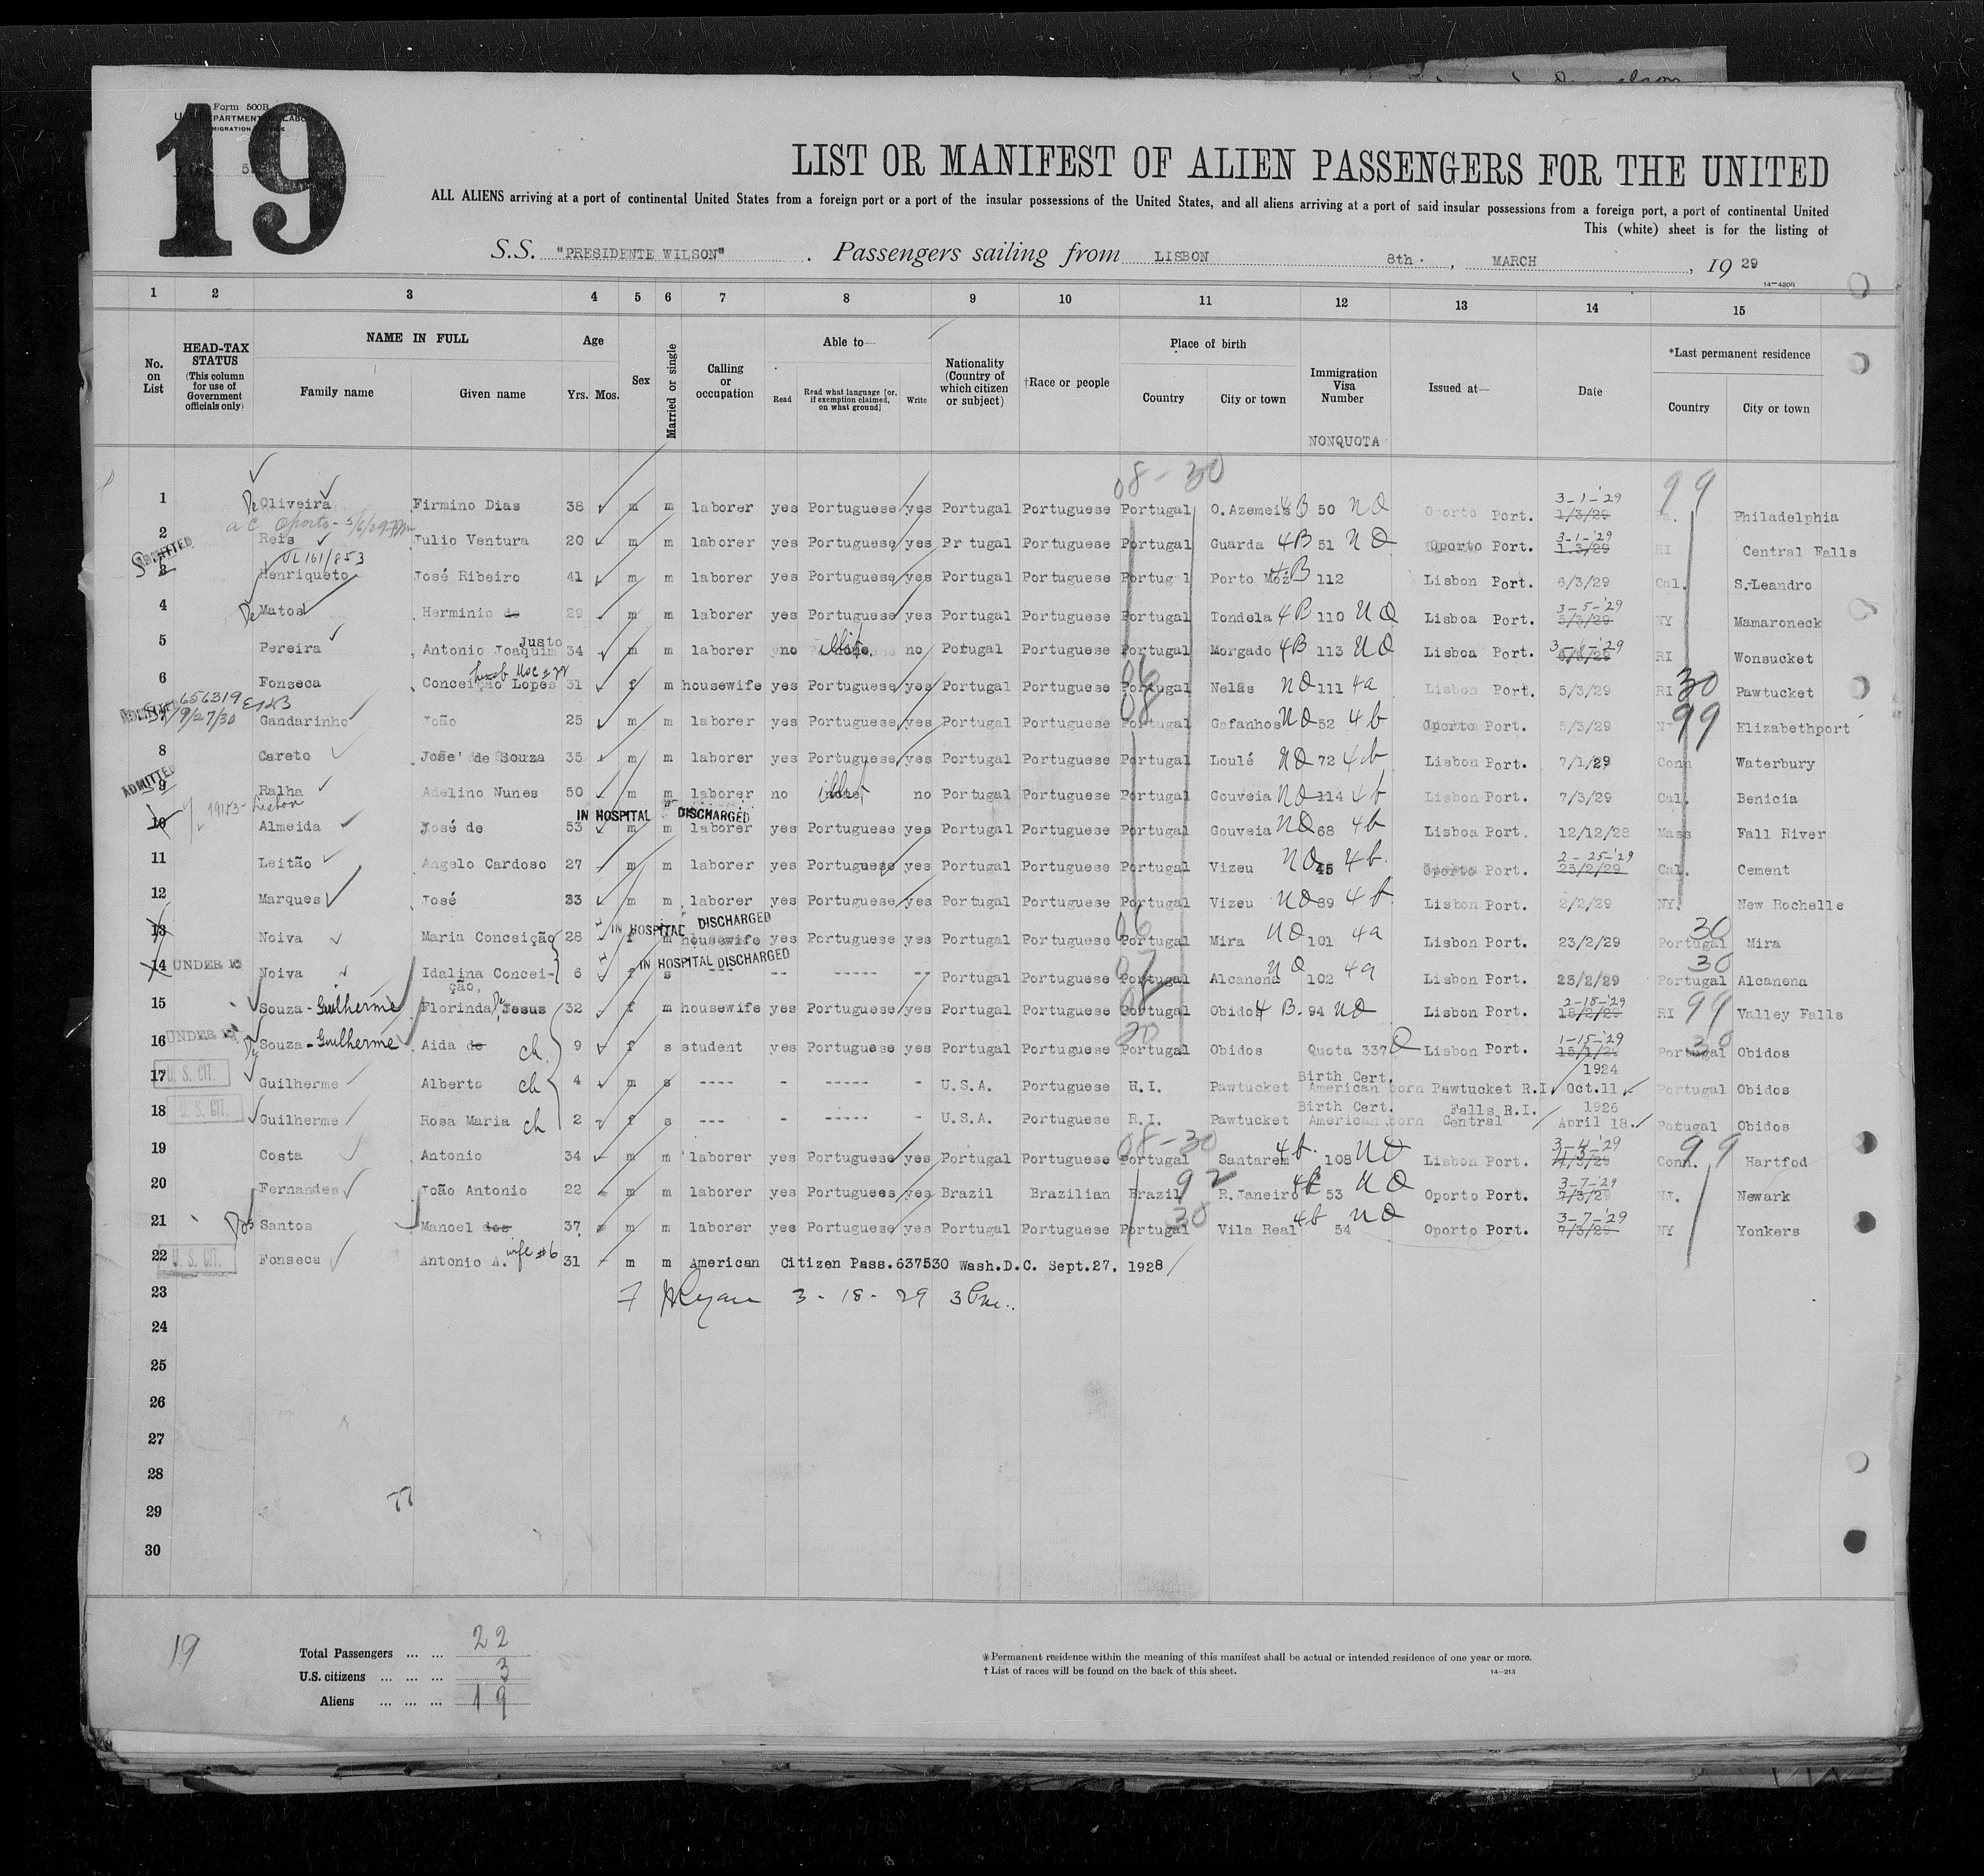 Form 500B
19
LIST OR MANIFEST OF ALIEN PASSENGERS FOR THE UNITED
ALL ALIENS arriving at a port of continental United States from a foreign port or a port of the insular possessions of the United States, and all aliens arriving at a port of said insular possessions from a foreign port, a port of continental United
This (white) sheet is for the listing of
S.S. "PRESIDENTE WILSON" . Passengers sailing from LISBON 8th. , MARCH , 19 29
14-420B
1 2 3 4 5 6 7 8 9 10 11 12 13 14 15
No. on List
HEAD-TAX STATUS (This column for use of Government officials only)
NAME IN FULL
Family name Given name
Age
Yrs. Mos.
Sex
Married or single
Calling or occupation
Able to—
Read Read what language [or, if exemption claimed, on what ground] Write
Nationality (Country of which citizen or subject)
†Race or people
Place of birth
Country City or town
Immigration Visa Number
NONQUOTA
Issued at—
Date
*Last permanent residence
Country City or town
08-30 99
1 De Oliveira Firmino Dias 38 m m laborer yes Portuguese yes Portugal Portuguese Portugal O.Azemeis 4B 50 NQ Oporto Port. 3-1-'29 1/3/29 Pa. Philadelphia
2 Reis Julio Ventura 20 m m laborer yes Portuguese yes Pr tugal Portuguese Portugal Guarda 4B 51 NQ Oporto Port. 3-1-'29 1.3/29 RI Central Falls
ADMITTED
3 Henriqueto José Ribeiro 41 m m laborer yes Portuguese yes Portugal Portuguese Portugal Porto Moz 4B 112 Lisbon Port. 6/3/29 Cal. S.Leandro
4 De Matos Herminio de 29 m m laborer yes Portuguese yes Portugal Portuguese Portugal Tondela 4B 110 NQ Lisboa Port. 3-5-'29 5/3/29 NY Mamaroneck
5 Pereira Antonio Joaquim Justo 34 m m laborer no no Portugal Portuguese Portugal Morgado 4B 113 NQ Lisboa Port. RI Wonsucket
6 Fonseca Conceição Lopes 31 f m housewife yes Portuguese yes Portugal Portuguese Portugal 06 Nelas NQ 111 4a Lisbon Port. 5/3/29 RI 30 Pawtucket
656319 9/27/30
7 Gandarinho João 25 m m laborer yes Portuguese yes Portugal Portuguese Portugal 08 Gafanhos NQ 52 4b Oporto Port. 5/3/29 NJ 99 Elizabethport
8 Careto José de Souza 35 m m laborer yes Portuguese yes Portugal Portuguese Portugal Loulé NQ 72 4b Lisbon Port. 7/1/29 Conn Waterbury
ADMITTED
9 Ralha Adelino Nunes 50 m m laborer no no Portugal Portuguese Portugal Gouveia NQ 114 4b Lisbon Port. 7/3/29 Cal. Benicia
IN HOSPITAL DISCHARGED
10 Almeida José de 53 m m laborer yes Portuguese yes Portugal Portuguese Portugal Gouveia NQ 68 4b Lisboa Port. 12/12/28 Mass Fall River
11 Leitão Angelo Cardoso 27 m m laborer yes Portuguese yes Portugal Portuguese Portugal Vizeu NQ 45 4b. Oporto Port. 2-25-'29 25/2/29 Cal. Cement
12 Marques José 33 m m laborer yes Portuguese yes Portugal Portuguese Portugal Vizeu NQ 89 4b Lisbon Port. 2/2/29 NY. New Rochelle
IN HOSPITAL DISCHARGED
13 Noiva Maria Conceição 28 f m housewife yes Portuguese yes Portugal Portuguese Portugal 06 Mira NQ 101 4a Lisbon Port. 23/2/29 Portugal 30 Mira
IN HOSPITAL DISCHARGED
14 UNDER 16 Noiva Idalina Conceição, 6 f s --- -- ----- -- Portugal Portuguese Portugal 07 Alcanena NQ 102 4a Lisbon Port. 23/2/29 Portugal 30 Alcanena
15 Souza-Guilherme Florinda De Jesus 32 f m housewife yes Portuguese yes Portugal Portuguese Portugal Obidos 4B. 94 NQ Lisbon Port. 2-18-'29 18/2/29 RI 99 Valley Falls
16 UNDER 16 De Souza-Guilherme Aida de ch 9 f s student yes Portuguese yes Portugal Portuguese Portugal Obidos Quota 337 Q Lisbon Port. 1-15-'29 15/1/29 Portugal 30 Obidos
17 U. S. CIT. Guilherme Alberto ch 4 m s ---- - ----- - U.S.A. Portuguese R.I. Pawtucket Birth Cert. American born Pawtucket R.I. 1924 Oct.11 Portugal Obidos
18 U. S. CIT. Guilherme Rosa Maria ch 2 f s --- - ----- - U.S.A. Portuguese R.I. Pawtucket Birth Cert. American born Central Falls R.I. 1926 April 18. Portugal Obidos
19 Costa Antonio 34 m m laborer yes Portuguese yes Portugal Portuguese Portugal 08-30 Santarem 4b. 108 NQ Lisbon Port. 3-4-'29 4/3/29 Conn. 99 Hartfod
20 Fernandes João Antonio 22 m m laborer yes Portuguees yes Brazil Brazilian Brazil 92 R.Janeiro 4b 53 NQ Oporto Port. 3-7-'29 7/3/29 NJ. Newark
21 Dos Santos Manoel dos 37 m m laborer yes Portuguese yes Portugal Portuguese Portugal 30 Vila Real 4b 54 NQ Oporto Port. 3-7-'29 7/3/29 NY Yonkers
22 U. S. CIT. Fonseca Antonio A. wife #6 31 m m American Citizen Pass.637530 Wash.D.C. Sept.27, 1928
23 Ryan 3-18-29 3 Pm..
24
25
26
27
28
29 77
30
19
Total Passengers ... ... 22
U.S. citizens ... ... ... 3
Aliens ... ... ... 19
*Permanent residence within the meaning of this manifest shall be actual or intended residence of one year or more.
†List of races will be found on the back of this sheet. 14-213